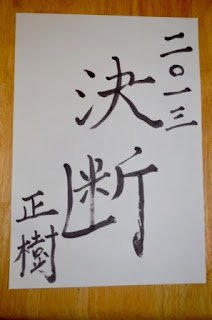 二〇一三
決断
正樹